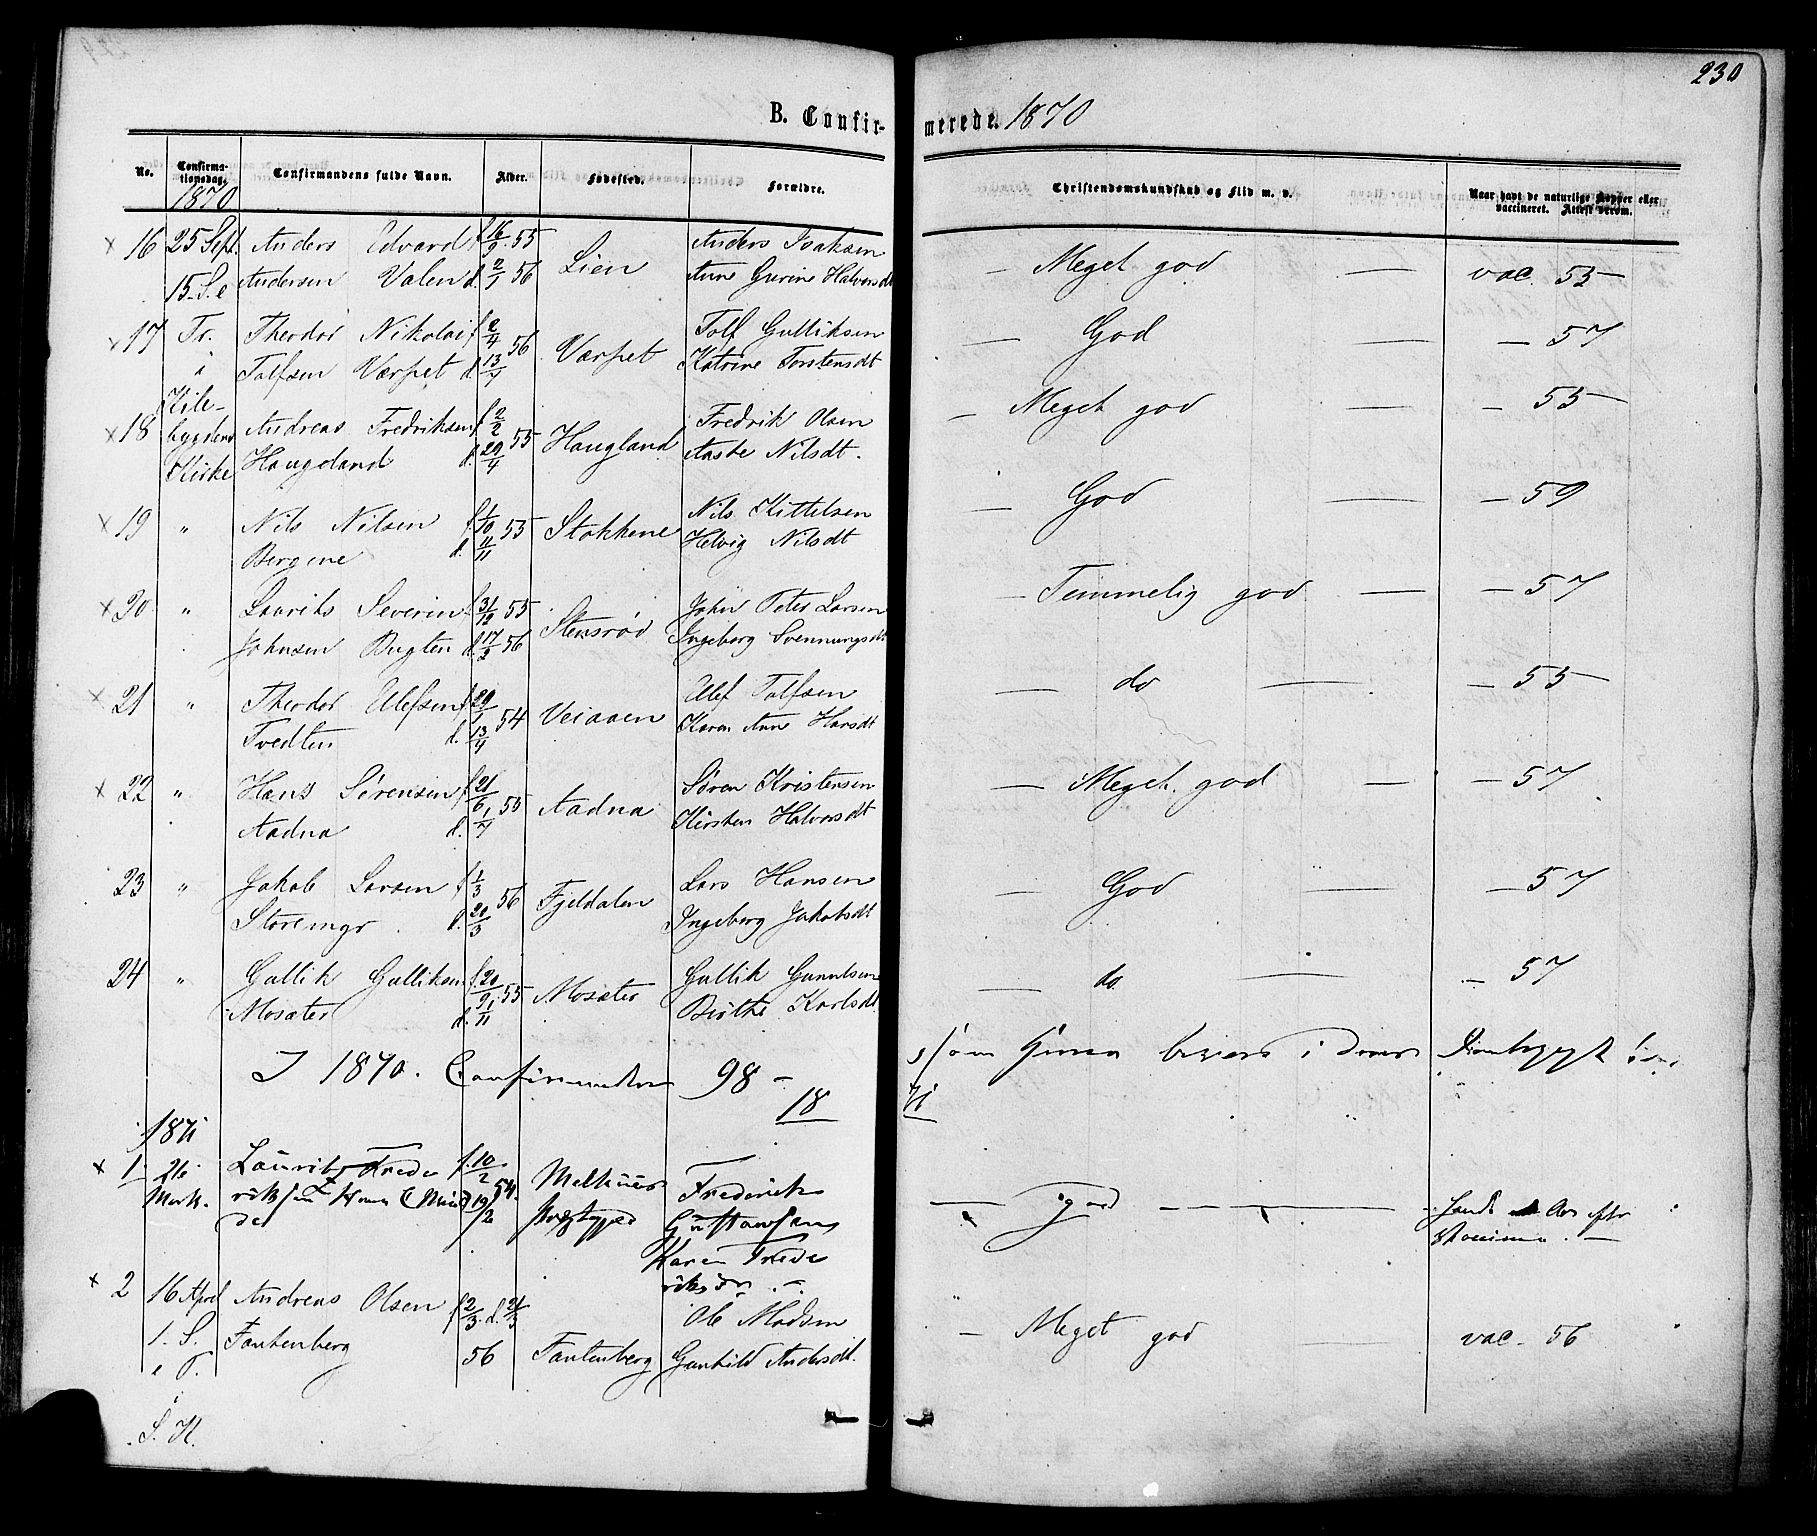 230
B. Confir- merede. 1870
No. Confirma- tionsdag. Confirmandens fulde Navn. Alder. Fødested. Forældre. Christendomskundskab og Flid m. v. Naar havt de naturlige Kopper eller vaccineret. Attest derom.
1870
x 16 25 Sept. Anders Edvard f. 16/9 55 Lien Anders Isaksen — Meget god — vac. 55
15. S. e Andersen Valen d. 2/1 56 Anne Gurine Halvorsdt
x 17 Tr. Theodor Nikolai f. 2/4 56 Værpet Tolf Gulliksen — God — — 57
i Tolfsen Værpet d. 13/4 Katrine Torstensdt
Kile-
x 18 bygdens Andreas Fredriksen f. 2/2 55 Haugland Fredrik Olsen — Meget god — — 55
Kirke Haugland d. 29/4 Aaste Nilsdt.
x 19 " Nils Nilsen f. 1/10 55 Stokkene Nils Kittelsen — God — — 59
Bergene d. 11/11 Helvig Nilsdt
x 20 " Laurits Severin f. 31/12 55 Stensrød John Peter Larsen — Temmelig god — — 57
Johnsen Bugten d. 17/2 56 Ingeborg Svennungsdt
x 21 " Theodor Ulefsen f. 29/1 54 Veiaaen Ulef Tolfsen — do — — 55
Tvedten d. 13/4 Karen Anne Hansdt
x 22 " Hans Sørensen f. 21/6 55 Aadna Søren Kristensen — Meget god — — 57
Aadna d. 1/7 Kirsten Halvorsdt
23 " Jakob Larsen f. 1/3 56 Fjeldalen Lars Hansen — God — — 57
Storemyr d. 20/3 Ingeborg Jakobsdt
24 " Gullik Gulliksen f. 20/9 55 Mosæter Gullik Gunulsen — do — — 57
Mosæter d. 1/11 Birthe Karlsdt
I 1870. Confirmeder 98 —
18
1871
x 1 26 Laurits Frede f. 10/2 54
Mart. d. 19/2 Frederik
Karen Frede
god
x 2 16 April Andreas Olsen f. 2/3 d. 21/3 Ole Madsen — Meget god — vac. 56
1. S. Fantenberg 56 Fantenberg Gunhild Andersdt.
e P.
i
S. K.